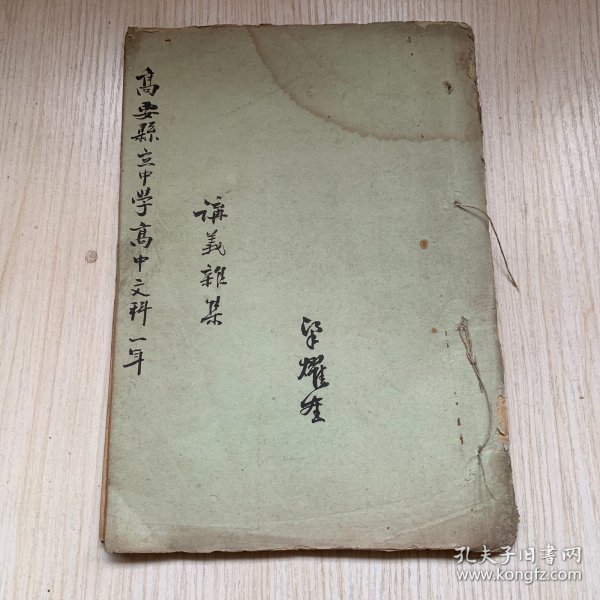 梁燿
講義雜集
高要縣立中學高中文科一年
孔夫子旧书网
www.kongfz.com